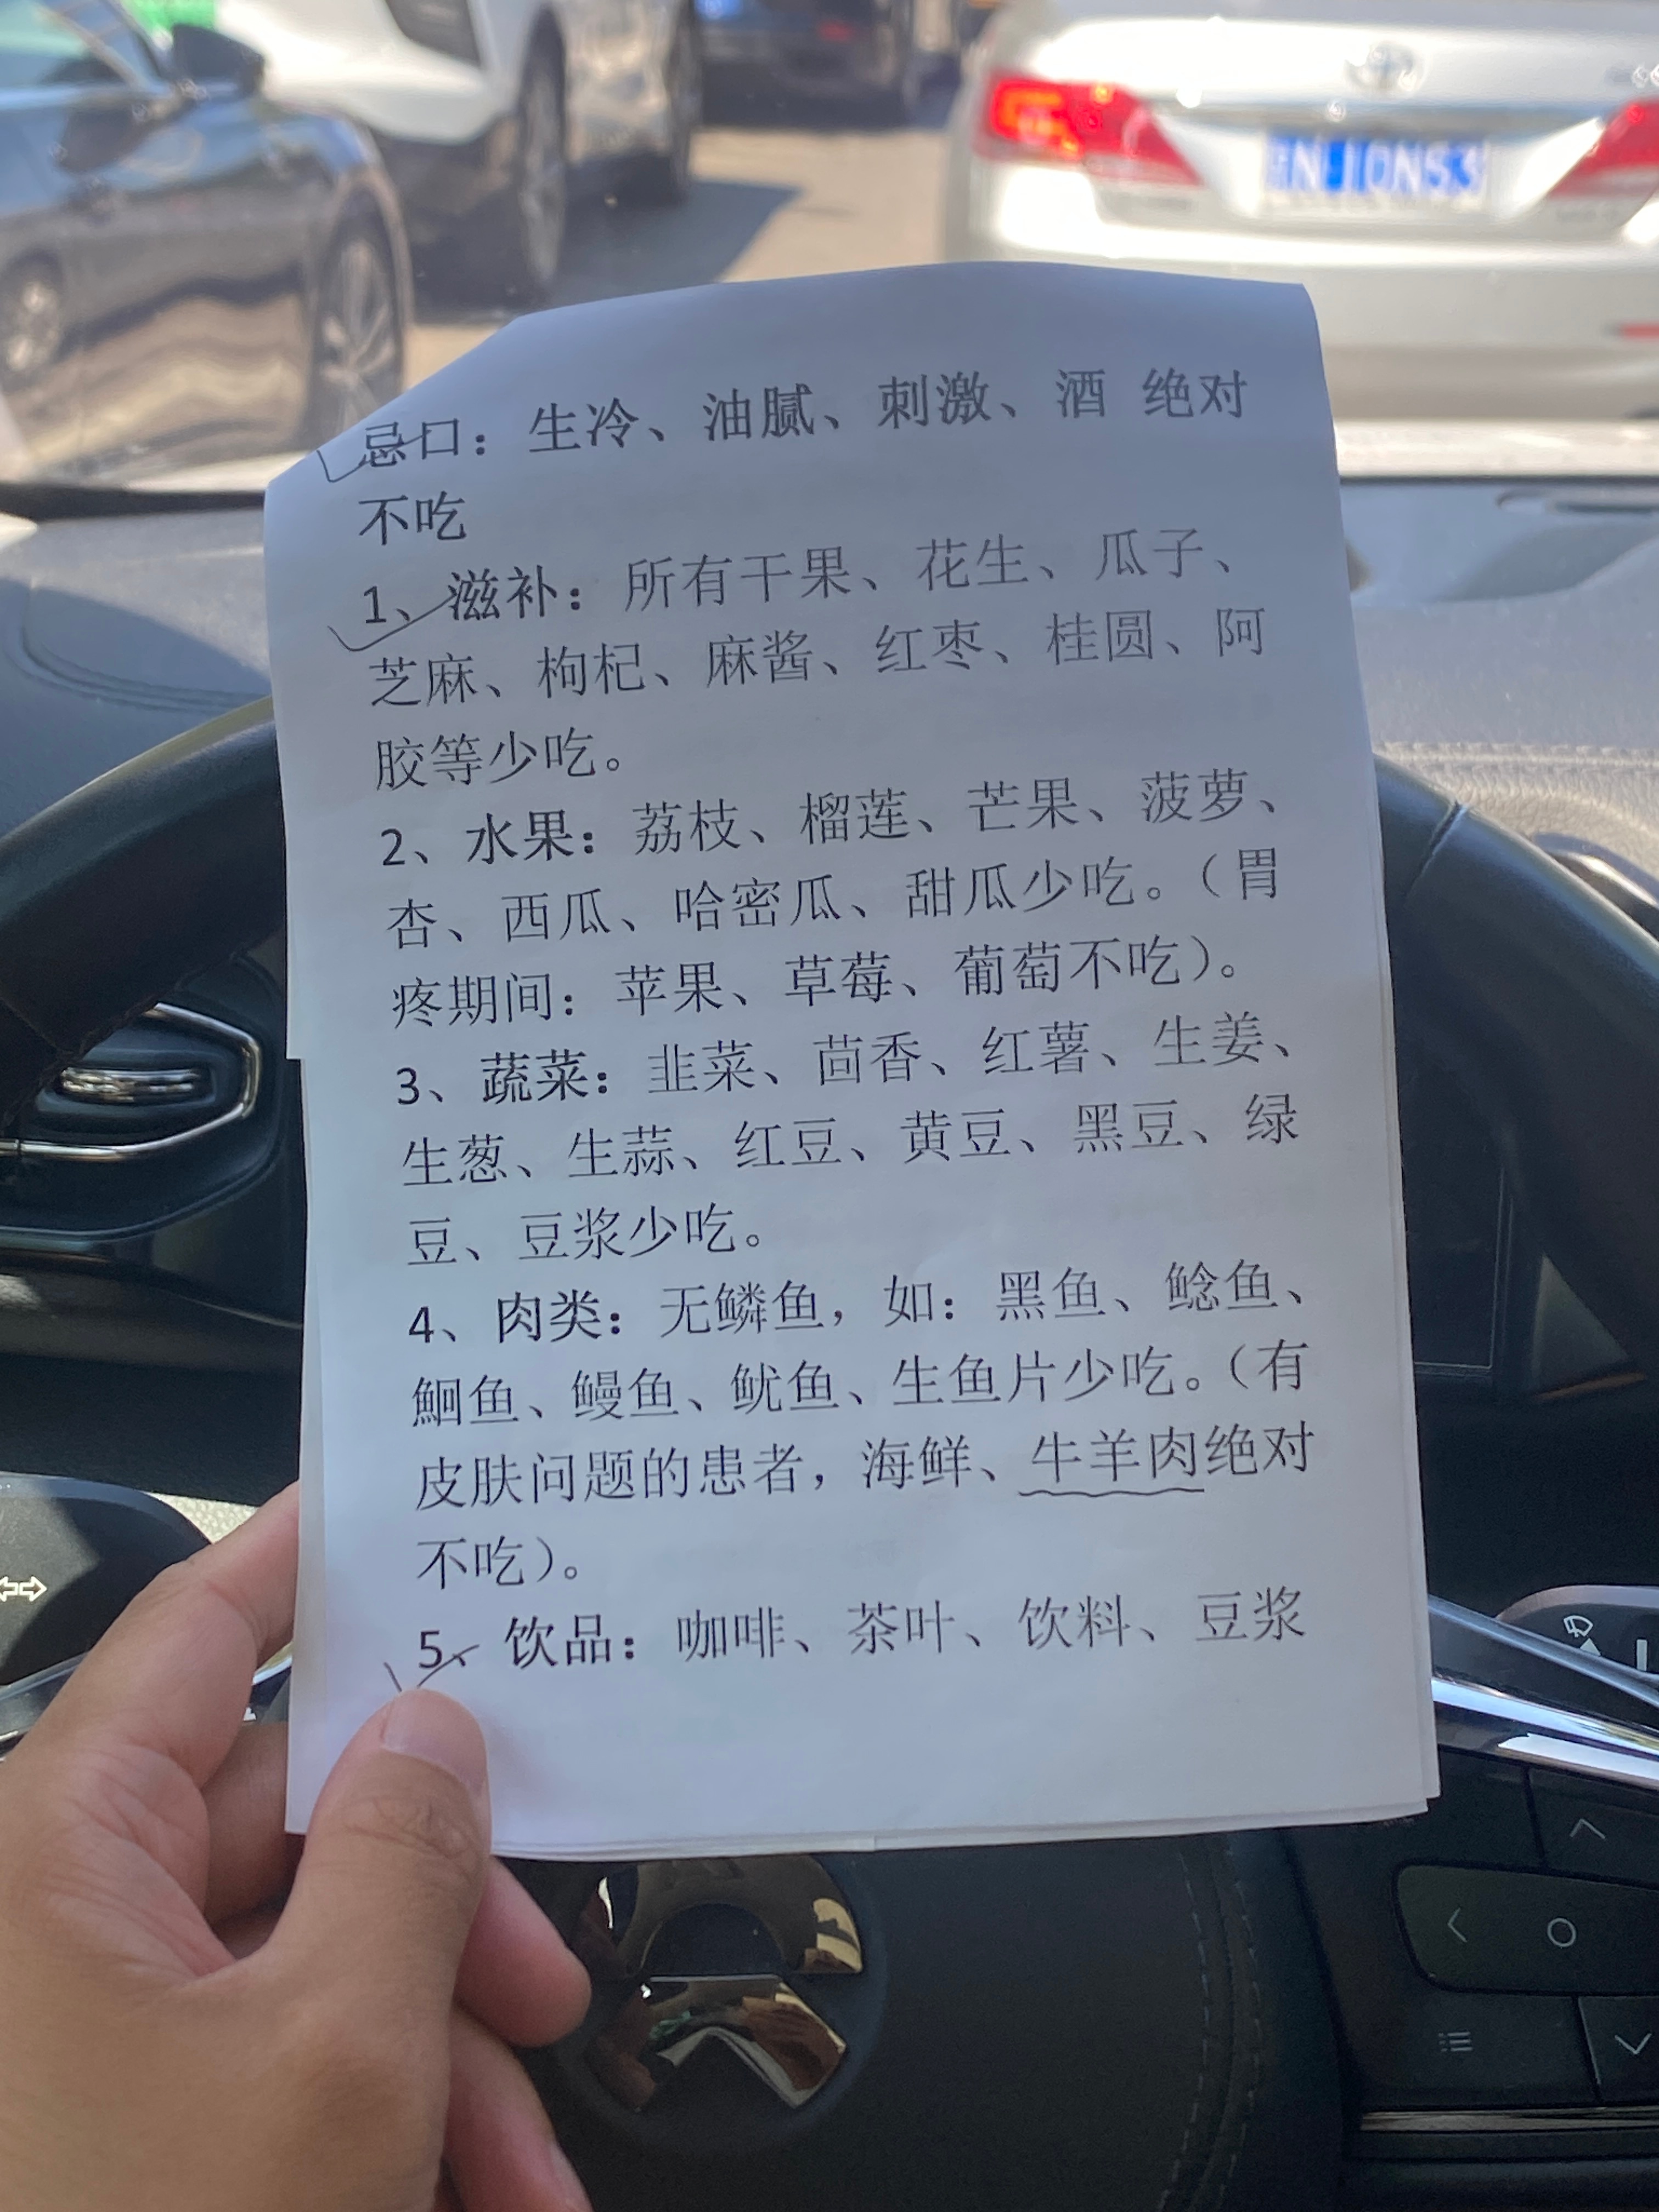 忌口：生冷、油腻、刺激、酒 绝对
不吃
1、滋补：所有干果、花生、瓜子、
芝麻、枸杞、麻酱、红枣、桂圆、阿
胶等少吃。
2、水果：荔枝、榴莲、芒果、菠萝、
杏、西瓜、哈密瓜、甜瓜少吃。（胃
疼期间：苹果、草莓、葡萄不吃）。
3、蔬菜：韭菜、茴香、红薯、生姜、
生葱、生蒜、红豆、黄豆、黑豆、绿
豆、豆浆少吃。
4、肉类：无鳞鱼，如：黑鱼、鲶鱼、
鮰鱼、鳗鱼、鱿鱼、生鱼片少吃。（有
皮肤问题的患者，海鲜、牛羊肉绝对
不吃）。
5、饮品：咖啡、茶叶、饮料、豆浆